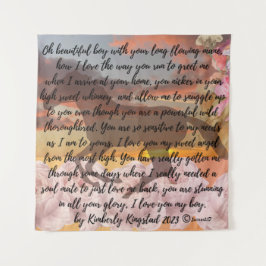 Oh beautiful boy with your long flowing mane,
how I love the way you run to greet me
when I arrive at your home, you nicker in your
high sweet whinney and allow me to snuggle up
to you even though you are a powerful wild
thoroughbred. You are so sensitive to my needs
as I am to yours, I love you my sweet angel
from the most high. You have really gotten me
through some days where I really needed a
soul mate to just love me back, you are stunning
in all your glory, I love you my boy.
by Kimberly Kingstad 2023 ©